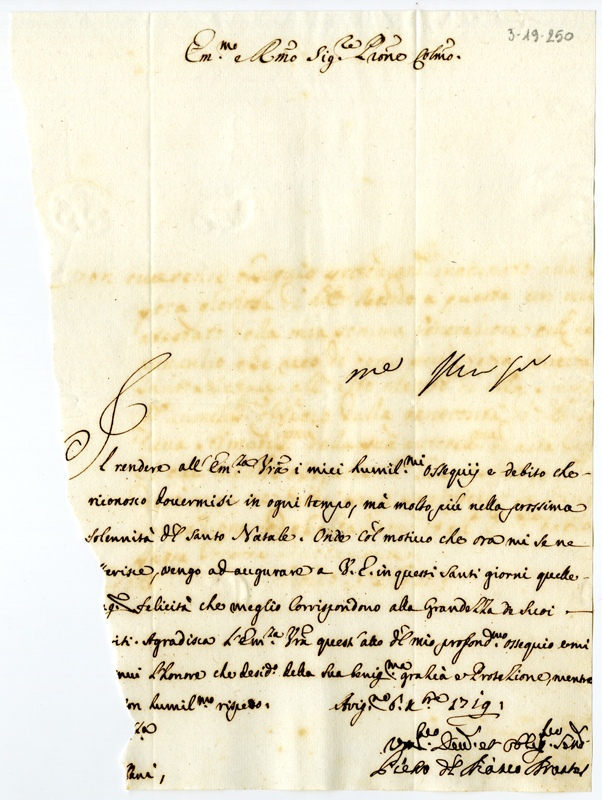 3-19-250
Em.mo e Rmo Sig.re Prone Colmo.
Il rendere all'Em.za Vra i miei humil.mi ossequij e debito che
riconosco dovermisi in ogni tempo, mà molto più nella prossima
solennità del Santo Natale. Onde col motivo che ora mi se ne
ferisce, vengo ad augurare a V. E. in questi Santi giorni quelle
felicità che meglio corrispondono alla Grandezza de Suoi
riti. Agradisca l'Em.za Vra quest'atto del mio profond.mo ossequio e mi
l'honore che desid.o della sua benig.ma gratia e Protezione, mentre
con humil.mo rispetto. Avig.ne 6. X.bre 1719.
Piero del Bianco